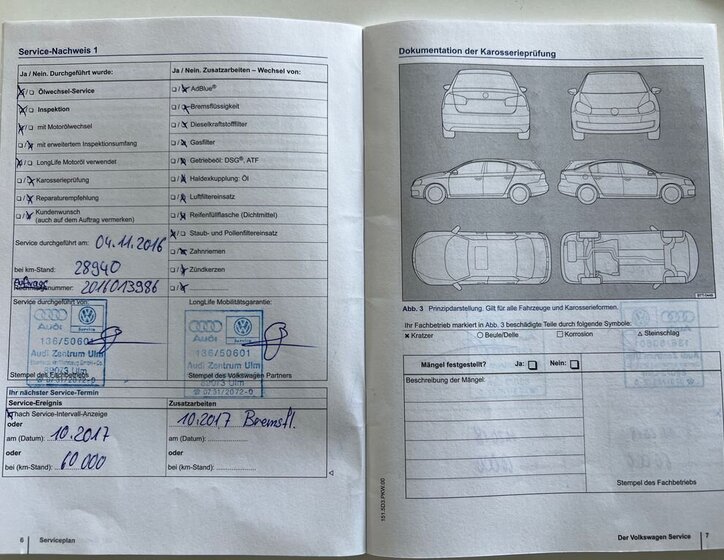 Service-Nachweis 1
Ja / Nein. Durchgeführt wurde:
Ölwechsel-Service
Inspektion
mit Motorölwechsel
mit erweitertem Inspektionsumfang
LongLife Motoröl verwendet
Karosserieprüfung
Reparaturempfehlung
Kundenwunsch
(auch auf dem Auftrag vermerken)
Service durchgeführt am: 04.11.2016
bei km-Stand: 28940
Auftrags
Rechnungsnummer: 2016013986
Service durchgeführt von:
Audi
Service
136/50601
Audi Zentrum Ulm
89073 Ulm
Stempel des Fachbetriebs
Ja / Nein. Zusatzarbeiten – Wechsel von:
AdBlue®
Bremsflüssigkeit
Dieselkraftstofffilter
Gasfilter
Getriebeöl: DSG®, ATF
Haldexkupplung: Öl
Luftfiltereinsatz
Reifenfüllflasche (Dichtmittel)
Staub- und Pollenfiltereinsatz
Zahnriemen
Zündkerzen
LongLife Mobilitätsgarantie:
Audi
Service
136/50601
Audi Zentrum Ulm
89073 Ulm
Stempel des Volkswagen Partners
0731/2072-0
Ihr nächster Service-Termin
Service-Ereignis
nach Service-Intervall-Anzeige
oder
am (Datum): 10.2017
oder
bei (km-Stand): 60 000
Zusatzarbeiten
10.2017 Bremsfl.
am (Datum):
oder
bei (km-Stand):
6 Serviceplan
Dokumentation der Karosserieprüfung
BTT-0445
Abb. 3 Prinzipdarstellung. Gilt für alle Fahrzeuge und Karosserieformen.
Ihr Fachbetrieb markiert in Abb. 3 beschädigte Teile durch folgende Symbole:
× Kratzer ○ Beule/Delle □ Korrosion △ Steinschlag
Mängel festgestellt? Ja: Nein:
Beschreibung der Mängel:
Stempel des Fachbetriebs
151.5D3.PKW.00
Der Volkswagen Service 7